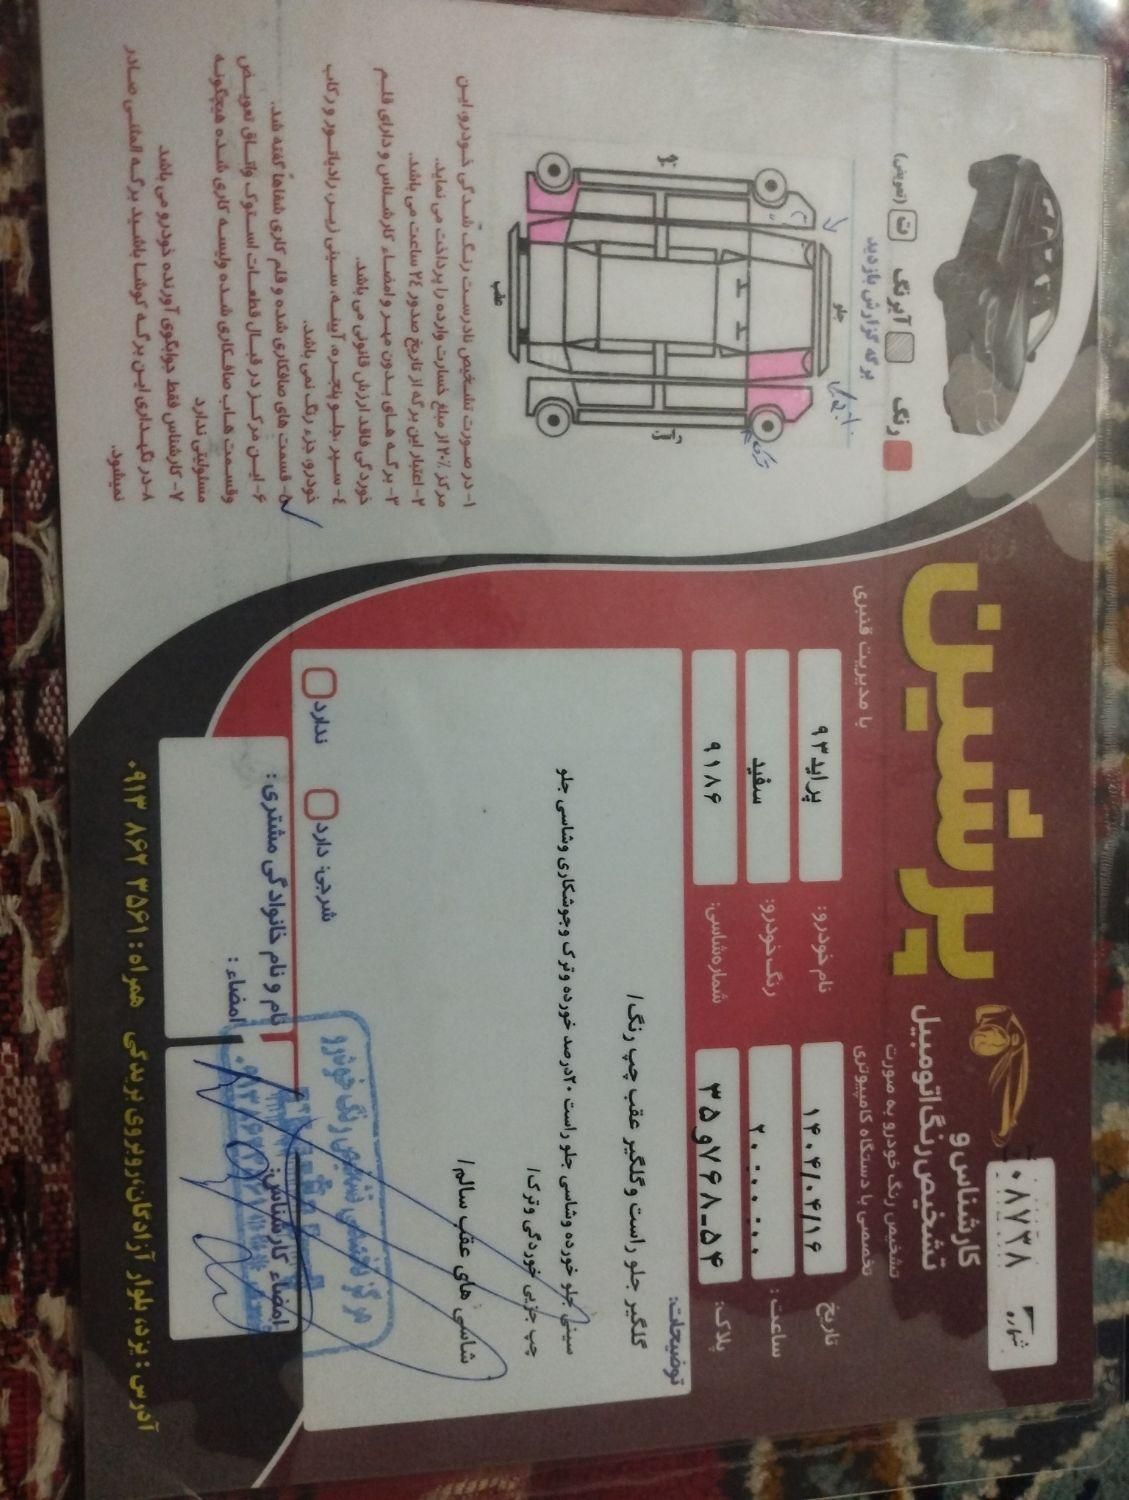 پرشین
با مدیریت قنبری
کارشناس و
تشخیص رنگ اتومبیل
تشخیص رنگ خودرو به صورت
تخصصی با دستگاه کامپیوتری
شماره ۰۸۷۳۸
نام خودرو: پراید ۹۳
رنگ خودرو: سفید
شماره شاسی: ۹۱۸۶
تاریخ ۱۴۰۴/۰۴/۱۶
ساعت: ۲۰:۰۰:۰۰
پلاک: ۵۴-۷۶۸و۳۵
توضیحات:
گلگیر جلو راست و گلگیر عقب چپ رنگ/
سینی جلو خورده وشاسی جلو راست ۲۰درصد خورده وترک وجوشکاری وشاسی جلو
چپ جزیی خوردگی وترک/
شاسی های عقب سالم/
شرجی: دارد ندارد
نام و نام خانوادگی مشتری:
امضاء:
امضاء کارشناس:
مرکز تخصصی تشخیص رنگ خودرو
آدرس: یزد، بلوار آزادگان، روبروی یزدگی همراه: ۰۹۱۳ ۸۶۲ ۳۵۶۱
رنگ آبرنگ ت (تعویض)
برگه گزارش بازدید
جلو
عقب
ترک
۱- در صورت تشخیص نادرست رنگ شدگی خودرو، این
مرکز ۲۰٪ از مبلغ خسارت وارده را پرداخت می نماید.
۲- اعتبار این برگه از تاریخ صدور ۲۴ ساعت می باشد.
۳- برگه های بدون مهر و امضاء کارشناس و دارای قلم
خوردگی فاقد ارزش قانونی می باشد.
۴- سپر، جلو پنجره، آیینه، سینی زیر، رادیاتور و رکاب
خودرو جزء رنگ نمی باشد.
۵- قسمت های صافکاری شده و قلم کاری شفاها گفته شد.
۶- این مرکز در قبال قطعات استوک واتاق تعویض
وقسمت هاب صافکاری شده ولیسه کاری شده هیچگونه
مسئولیتی ندارد
۷- کارشناس فقط جوابگوی آورنده خودرو می باشد
۸- در نگهداری این برگه کوشا باشید برگه المثنی صادر
نمیشود.